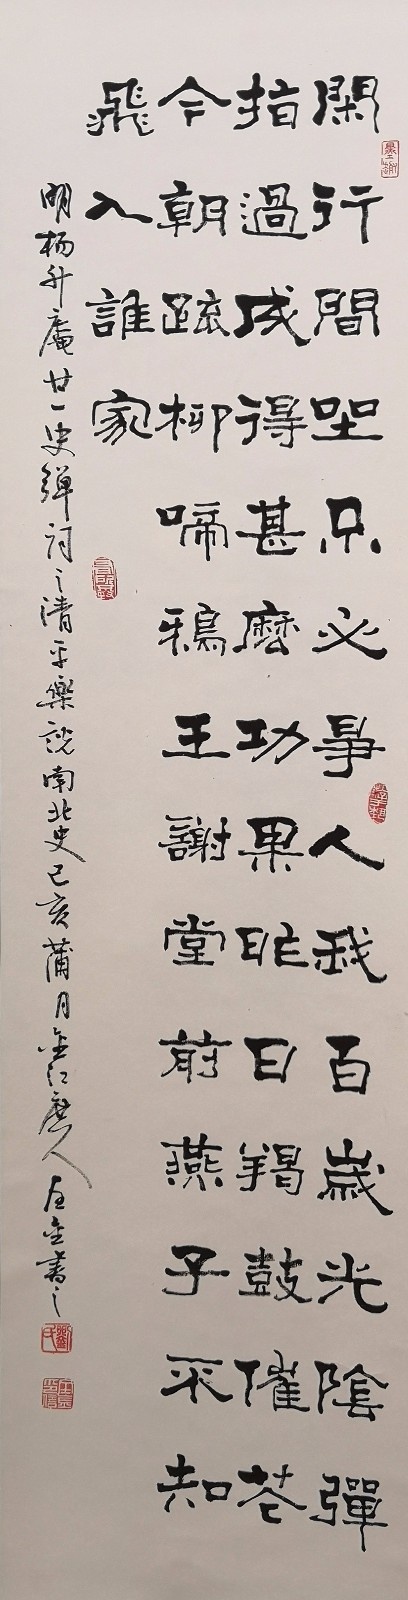 閑行間坐不必爭人我百歲光陰彈
指過成得甚麼功果昨日羯鼓催花
今朝疏柳啼鴉王謝堂前燕子不知
飛入誰家
明杨升庵廿一史彈詞之清平樂說南北史己亥蒲月人書之